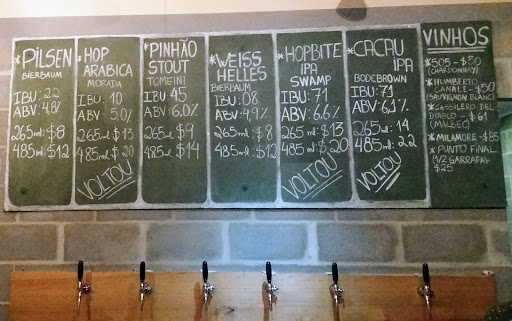 *PILSEN
BIERBAUM
IBU: 22
ABV: 4,8%
265ml $8
485ml $12
*HOP
ARABICA
MORADA
IBU: 10
ABV: 5.0%
265ml $13
485ml $20
VOLTOU
*PINHÃO
STOUT
TOMEINI
IBU 45
ABV: 6.0%
265ml $9
485ml $14
*WEISS
HELLES
BIERBAUM
IBU: 08
ABV: 4,9%
265ml $8
485ml $12
*HOPBITE
IPA
SWAMP
IBU: 71
ABV: 6,6%
265ml $13
485ml $20
VOLTOU
*CACAU
IPA
BODEBROWN
IBU: 71
ABV: 6,1%
265ml 14
485ml 22
VOLTOU
VINHOS
*505-$50
(CHARDONNAY)
*HUMBERTO
CANALE-$50
(SAUVIGNON BLANC)
*CASILLERO DEL
DIABLO-$61
(MALBEC)
*MILAMORE-$85
*PUNTO FINAL
(1/2 GARRAFA)
$25